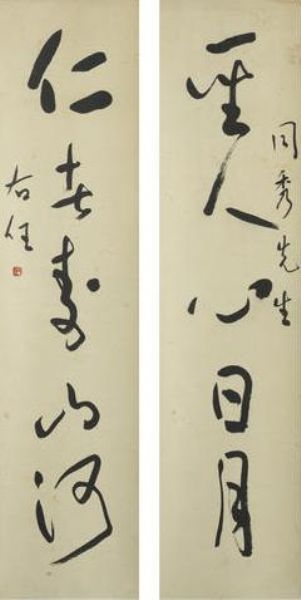 聖人心日月
同秀先生
仁者壽山河
右任